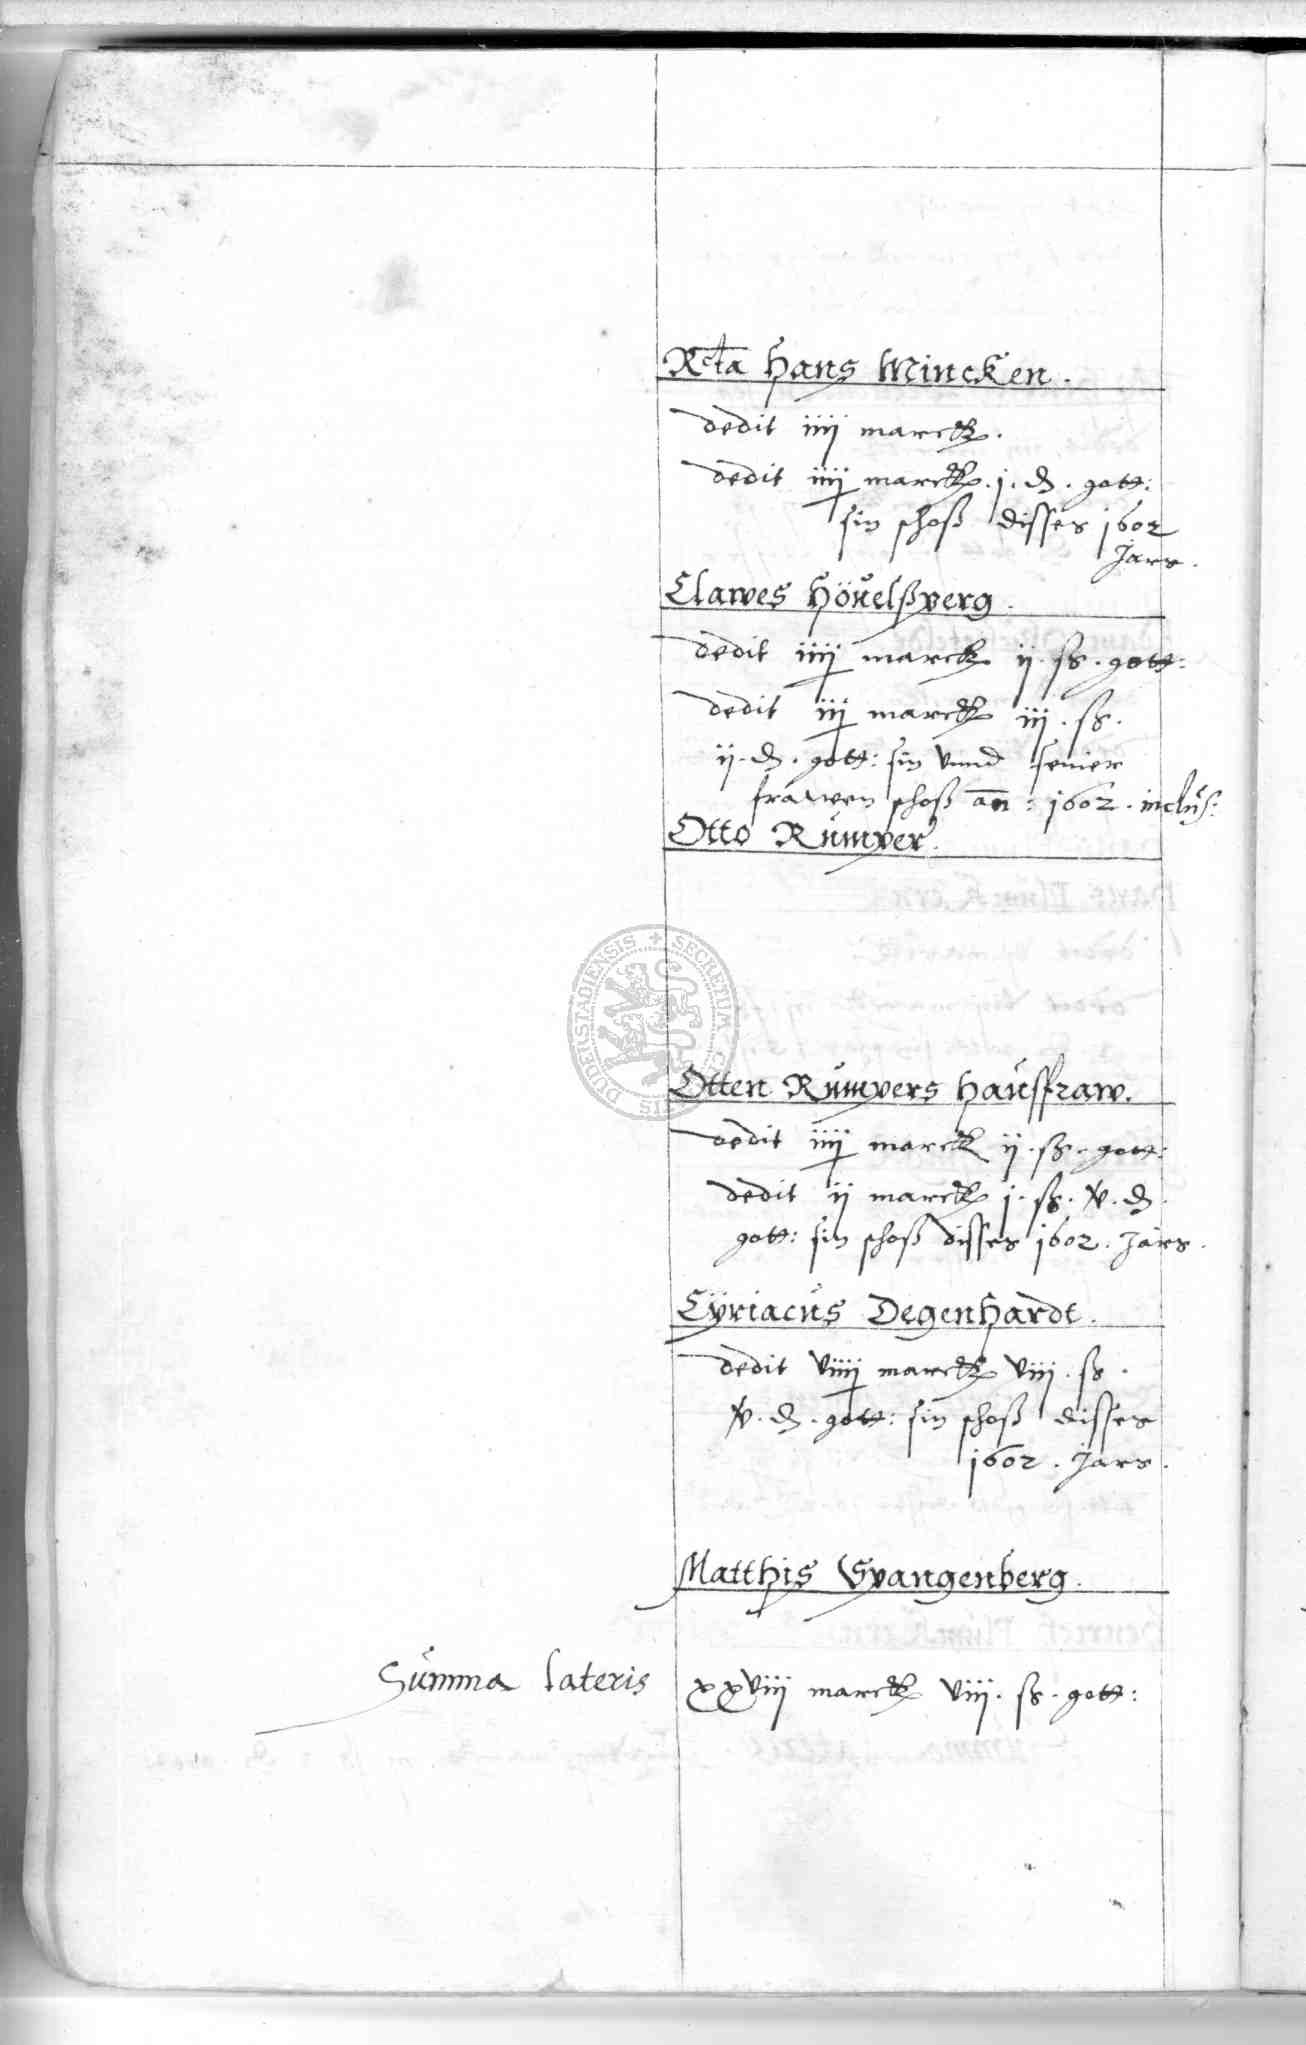 Rcta Hans Mincken.
dedit iiij marck.
dedit iiij marck. j. ₰. gott:
sin schoß disses 1602
Jars.
Clawes Höuelßperg.
dedit iiij marck ij. ß. gott:
dedit iij marck iij. ß.
ij. ₰. gott: sin vnnd seiner
frawen schoß an̄: 1602. inclus:
Otto Rumper.
DUDERSTADIENSIS + SECRETUM
Otten Rumpers Haussfraw.
dedit iiij marck ij. ß. gott:
dedit ij marck j. ß. v. ₰.
gott: sin schoß disses 1602. Jars.
Cÿriacus Degenhardt.
dedit viiij marck viij. ß.
v. ₰. gott: sin schoß disses
1602. Jars.
Matthis Spangenberg.
Summa lateris xxviij marck viij. ß. gott: